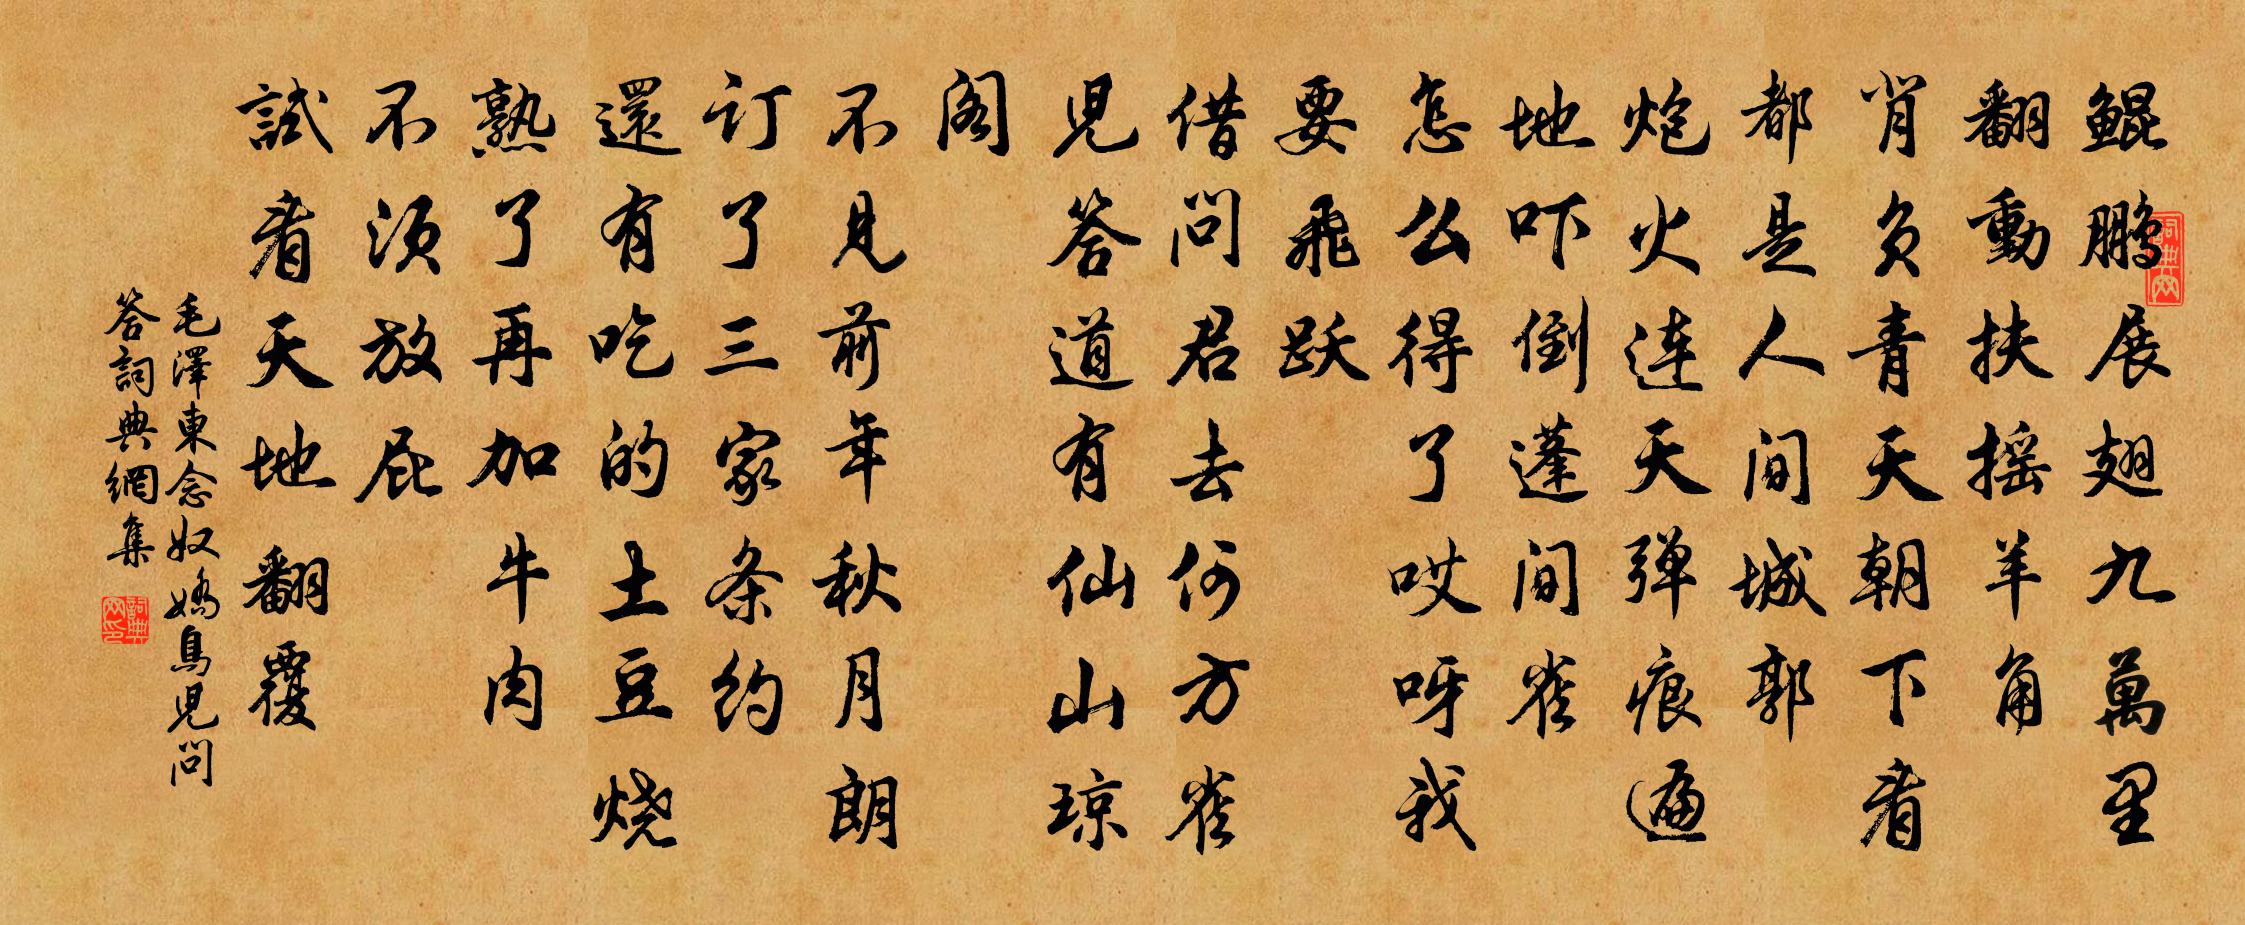 鲲鹏展翅九萬里
翻動扶摇羊角
肖负青天朝下看
都是人间城郭
炮火连天弹痕遍
地吓倒蓬间雀
怎么得了哎呀我
要飛跃
借问君去何方雀
兒答道有仙山琼
阁
不見前年秋月朗
订了三家条约
還有吃的土豆烧
熟了再加牛肉
不须放屁
試看天地翻覆
毛澤東念奴嬌鳥兒問
答詞典網集
詞典网
詞典网印